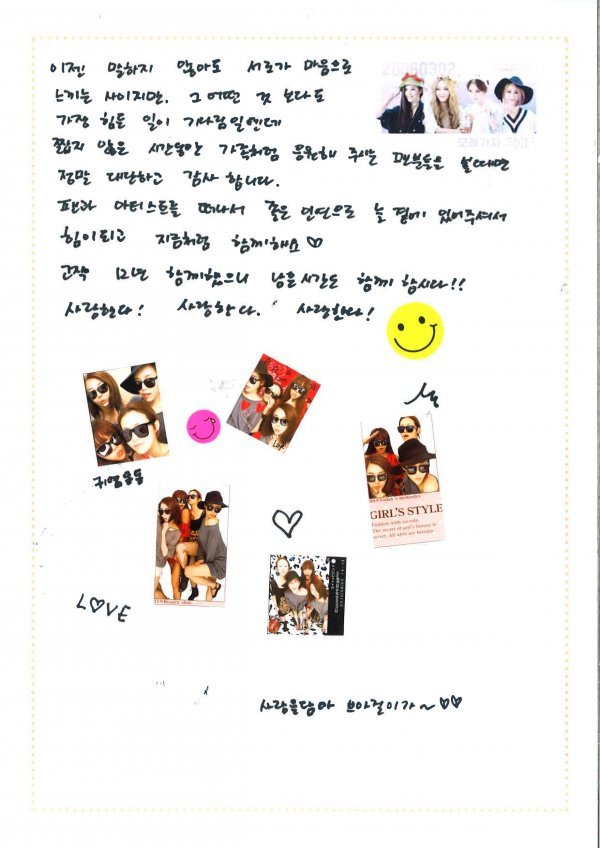 이젠 말하지 않아도 서로가 마음으로
느끼는 사이지만, 그 어떤 것 보다도
가장 힘든 일이 기다림일텐데
짧지 않은 시간동안 가족처럼 응원해 주시는 팬분들을 볼때면
정말 대단하고 감사 합니다.
팬과 아티스트를 떠나서 좋은 인연으로 늘 곁에 있어주셔서
힘이되고 지금처럼 함께해요♡
고작 12년 함께했으니 남은시간도 함께 합시다!!
사랑한다! 사랑한다. 사랑한다!
20060302
귀염둥둥
GIRL'S STYLE
LOVE
사랑을담아 브아걸이가~♡♡